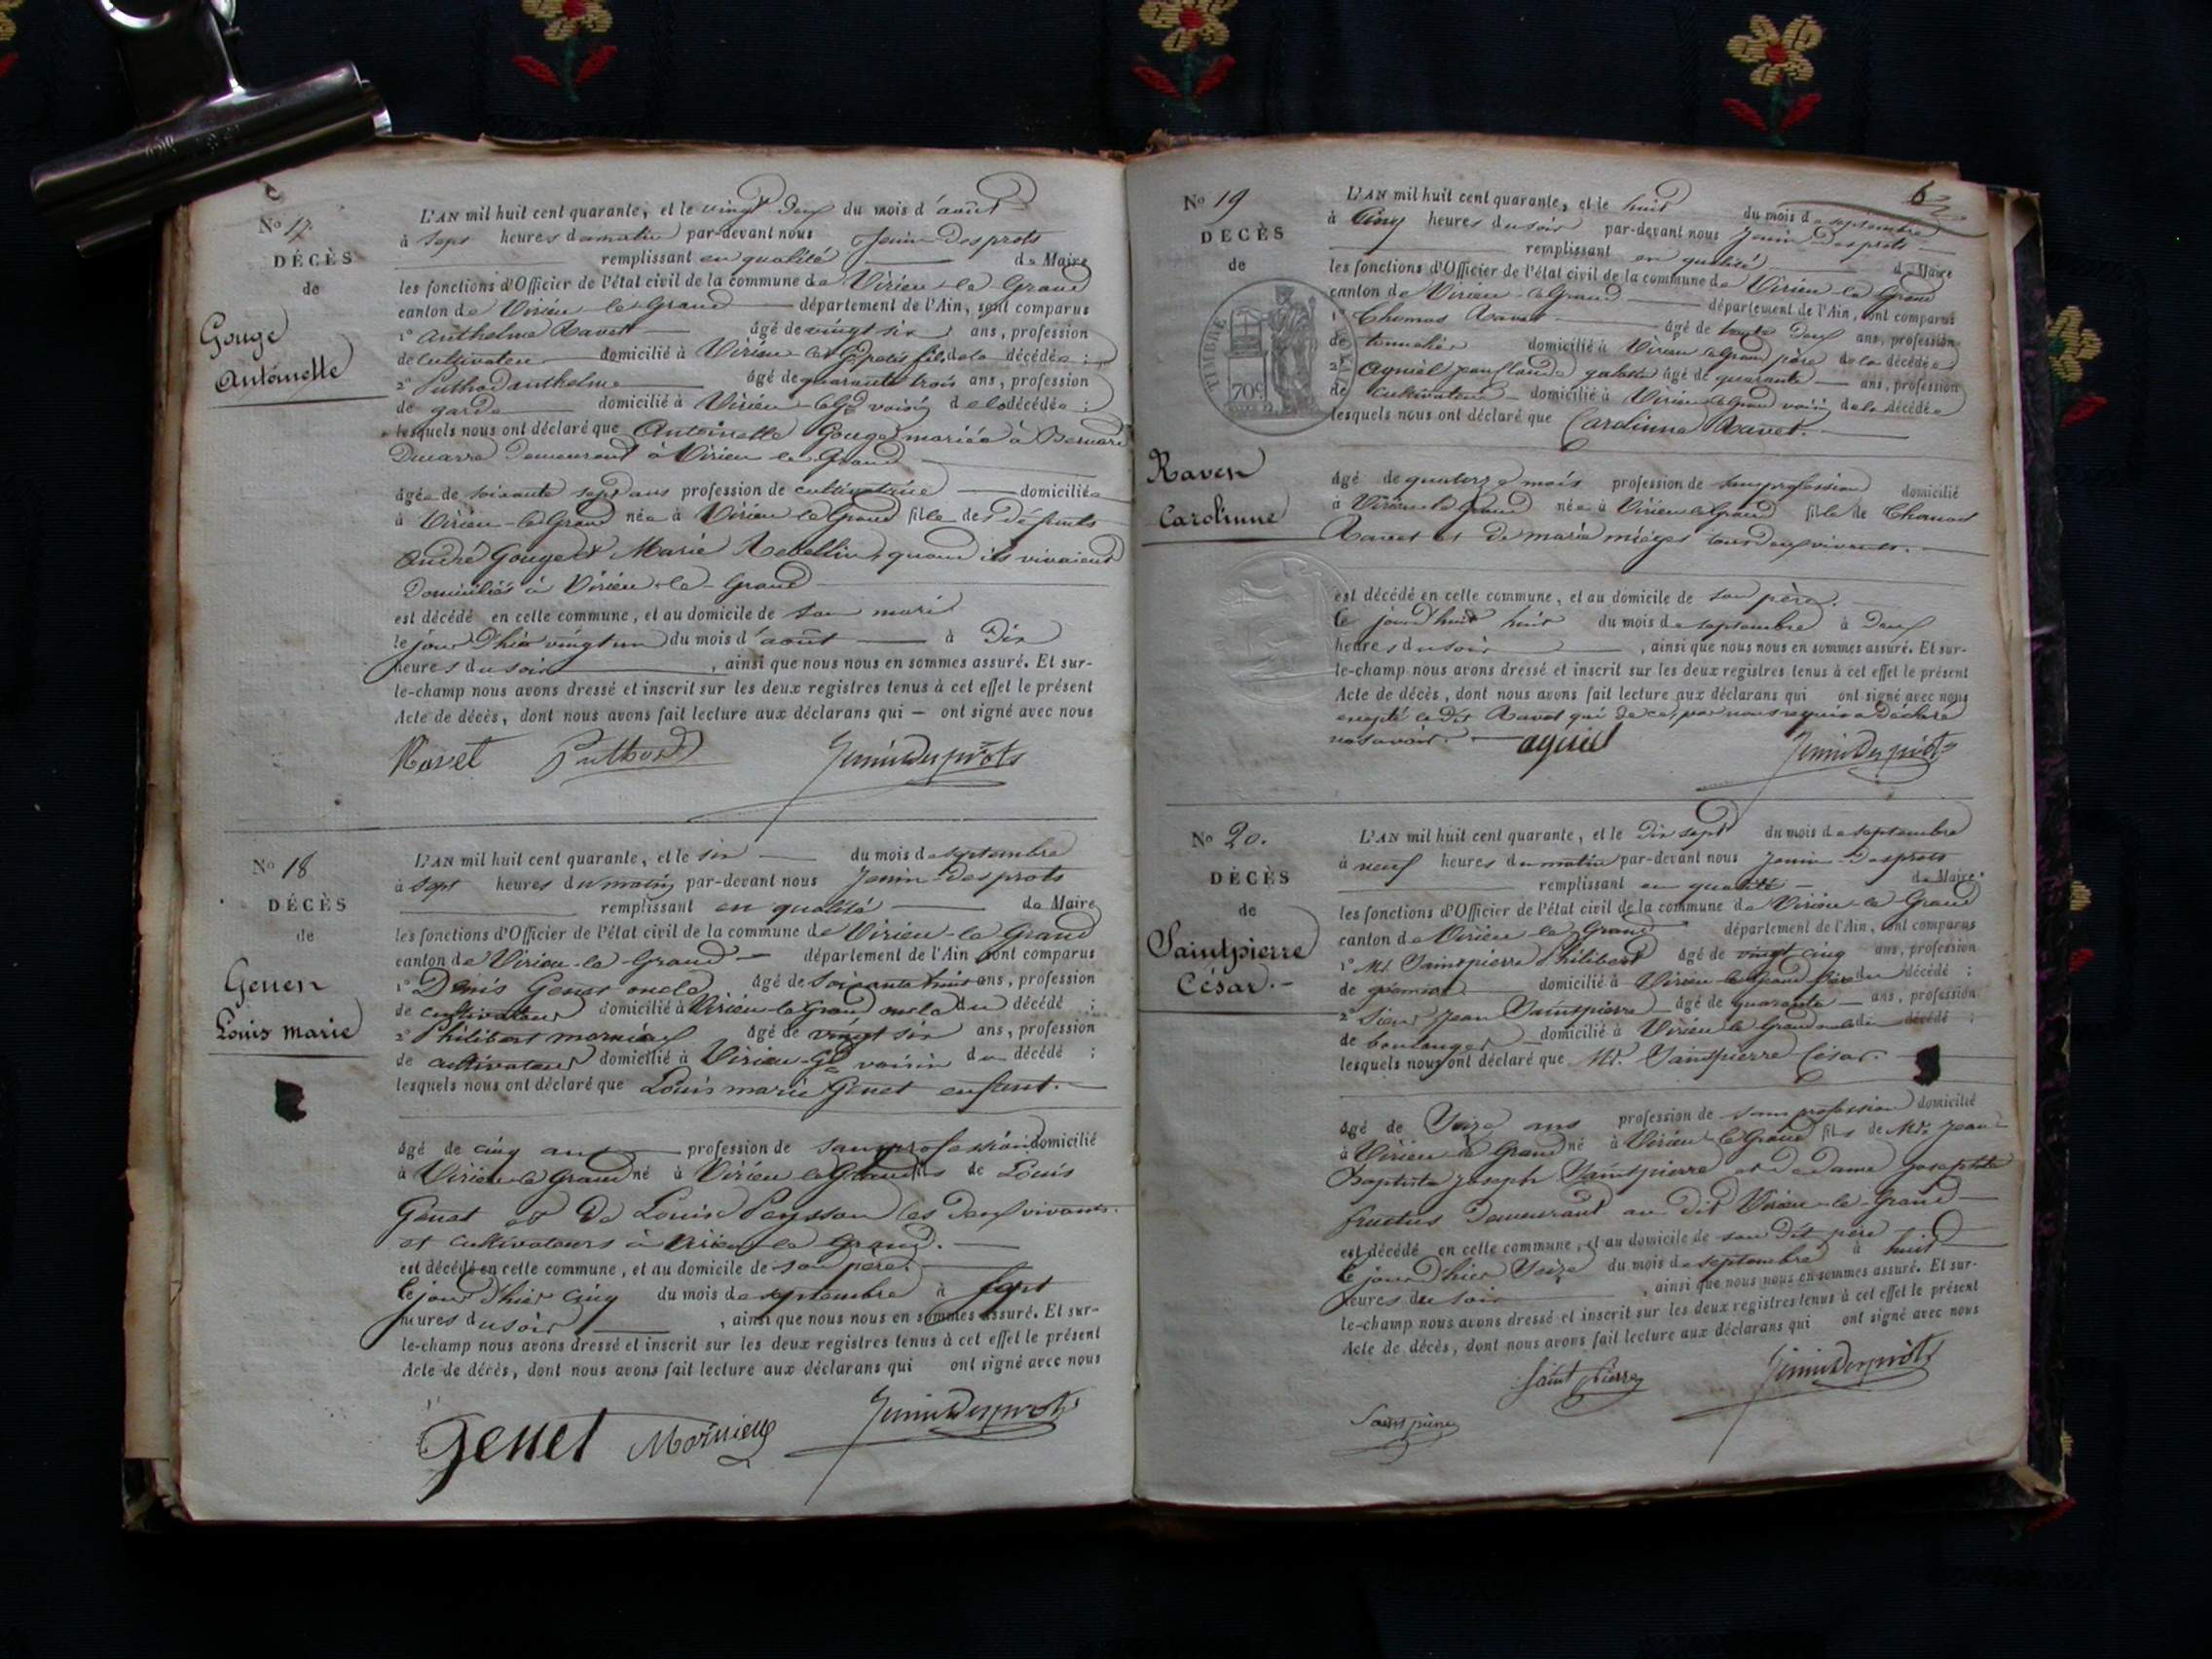 No 17.
DÉCÈS
de
Gouge
Antoinette
L'AN mil huit cent quarante, et le vingt deux du mois d'août
à sept heures du matin par-devant nous Jenin Desprots
remplissant en qualité de Maire
les fonctions d'Officier de l'état civil de la commune de Virieu-le-Grand
canton de Virieu-le-Grand département de l'Ain, sont comparus
1° Anthelme Ravet âgé de vingt six ans, profession
de cultivateur domicilié à Virieu-le-Gd fils de la décédée ;
2° Puthod anthelme âgé de quarante trois ans, profession
de garde domicilié à Virieu-le-Gd voisin de la décédée ;
lesquels nous ont déclaré que Antoinette Gouge mariée à Bernard
demeurant à Virieu le Grand
âgée de soixante sept ans profession de cultivatrice domiciliée
à Virieu-le-Grand née à Virieu le Grand fille des défunts
André Gouge et Marie Rebellin, quand ils vivaient
domiciliés à Virieu-le-Grand
est décédé en cette commune, et au domicile de son mari
le jour d'hier vingt un du mois d'août à dix
heures du soir, ainsi que nous nous en sommes assuré. Et sur-
le-champ nous avons dressé et inscrit sur les deux registres tenus à cet effet le présent
Acte de décès, dont nous avons fait lecture aux déclarans qui — ont signé avec nous
Ravet Puthod Jenin Desprots
No 18
DÉCÈS
de
Genet
Louis marie
L'AN mil huit cent quarante, et le six du mois de septembre
à sept heures du matin par-devant nous Jenin Desprots
remplissant en qualité de Maire
les fonctions d'Officier de l'état civil de la commune de Virieu-le-Grand
canton de Virieu-le-Grand — département de l'Ain sont comparus
1° Denis Genet oncle âgé de soixante huit ans, profession
de cultivateur domicilié à Virieu-le-Grand oncle du décédé ;
2° Philibert mornieux âgé de vingt six ans, profession
de cultivateur domicilié à Virieu-Gd voisin du décédé ;
lesquels nous ont déclaré que Louis marie Genet enfant.
âgé de cinq ans profession de sans profession domicilié
à Virieu-le Grand né à Virieu le Grand fils de Louis
Genet et de Louise Peysson les deux vivants
et cultivateurs à Virieu-le Grand.
est décédé en cette commune, et au domicile de son père.
le jour d'hier cinq du mois de septembre à sept
heures du soir, ainsi que nous nous en sommes assuré. Et sur-
le-champ nous avons dressé et inscrit sur les deux registres tenus à cet effet le présent
Acte de décès, dont nous avons fait lecture aux déclarans qui ont signé avec nous
Genet Jenin Desprots
6
No 19
DÉCÈS
de
TIMBRE ROYAL
70c
Ravet
Carolinne
L'AN mil huit cent quarante, et le huit du mois de septembre
à cinq heures du soir par-devant nous Jenin Desprots
remplissant en qualité de Maire
les fonctions d'Officier de l'état civil de la commune de Virieu-le Grand
canton de Virieu-le Grand département de l'Ain, sont comparus
1° Thomas Ravet âgé de trente deux ans, profession
de tonnelier domicilié à Virieu le Grand père de la décédée
2° âgé de quarante — ans, profession
de cultivateur domicilié à Virieu-le Grand voisin de la décédée
lesquels nous ont déclaré que Carolinne Ravet.
âgé de quatorze mois profession de sans profession domicilié
à Virieu-le Grand née à Virieu le Grand fille de Thomas
Ravet et de marie tous deux vivants.
est décédé en cette commune, et au domicile de son père.
le jourd'huit huit du mois de septembre à deux
heures du soir, ainsi que nous nous en sommes assuré. Et sur-
le-champ nous avons dressé et inscrit sur les deux registres tenus à cet effet le présent
Acte de décès, dont nous avons fait lecture aux déclarans qui ont signé avec nous
excepté le dit Ravet qui de ce par nous requis a déclaré
ne savoir. Jenin Desprots
No 20.
DÉCÈS
de
Saintpierre
César.
L'AN mil huit cent quarante, et le dix sept du mois de septembre
à neuf heures du matin par-devant nous Jenin Desprots
remplissant en qualité de Maire
les fonctions d'Officier de l'état civil de la commune de Virieu-le-Grand
canton de Virieu le Grand département de l'Ain, sont comparus
1° Mr. Saintpierre Philibert âgé de vingt cinq ans, profession
de domicilié à Virieu-le Grand frère du décédé ;
2° Sieur Jean Saintpierre âgé de quarante — ans, profession
de boulanger domicilié à Virieu le Grand oncle du décédé ;
lesquels nous ont déclaré que Mr. Saintpierre César.
âgé de seize ans profession de sans profession domicilié
à Virieu le Grand né à Virieu-le Grand fils de Mr. Jean
Baptiste Joseph Saintpierre et de Dame Josephte
fructus demeurant au dit Virieu-le-Grand —
est décédé en cette commune, et au domicile de son dit père
le jour d'hier seize du mois de septembre à huit
heures du soir, ainsi que nous nous en sommes assuré. Et sur-
le-champ nous avons dressé et inscrit sur les deux registres tenus à cet effet le présent
Acte de décès, dont nous avons fait lecture aux déclarans qui ont signé avec nous
Saint Pierre Jenin Desprots
Saintpierre